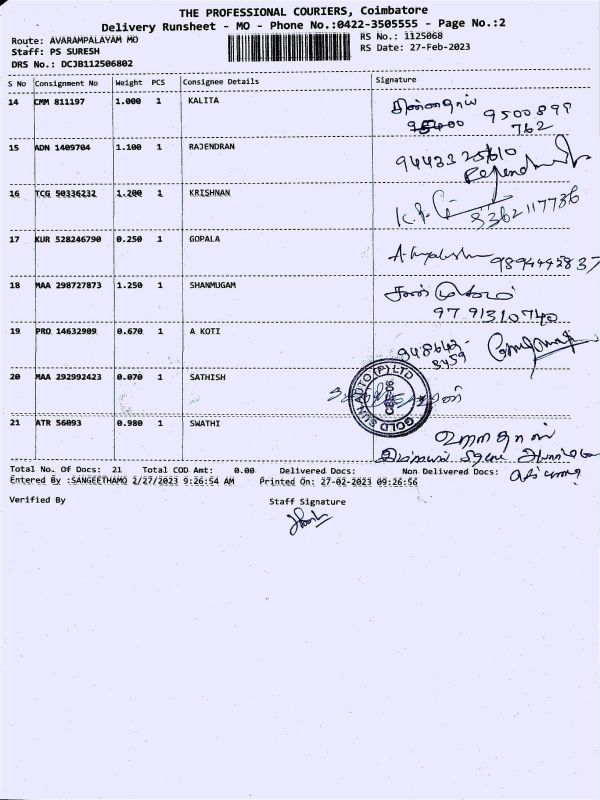 THE PROFESSIONAL COURIERS, Coimbatore
Delivery Runsheet - MO - Phone No.:0422-3505555 - Page No.:2
Route: AVARAMPALAYAM MO
RS No.: 1125068
Staff: PS SURESH
RS Date: 27-Feb-2023
DRS No.: DCJB112506802
S No Consignment No Weight PCS Consignee Details Signature
14 CMM 811197 1.000 1 KALITA
9500899
762
15 ADN 1409704 1.100 1 RAJENDRAN
9443325610
16 TCG 50336232 1.200 1 KRISHNAN
17 KUR 528246790 0.250 1 GOPALA
18 MAA 298727873 1.250 1 SHANMUGAM
சண்முகம்
97 91310740
19 PRO 14632909 0.670 1 A KOTI
20 MAA 292992423 0.070 1 SATHISH
GOLD SUN AUTO (P) LTD
21 ATR 56093 0.980 1 SWATHI
Total No. Of Docs: 21 Total COD Amt: 0.00 Delivered Docs: Non Delivered Docs:
Entered By :SANGEETHAMO 2/27/2023 9:26:54 AM Printed On: 27-02-2023 09:26:56
Verified By Staff Signature